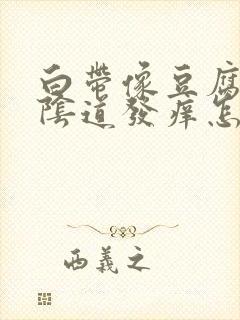 白帶像豆腐
陰道發痒怎
西義之